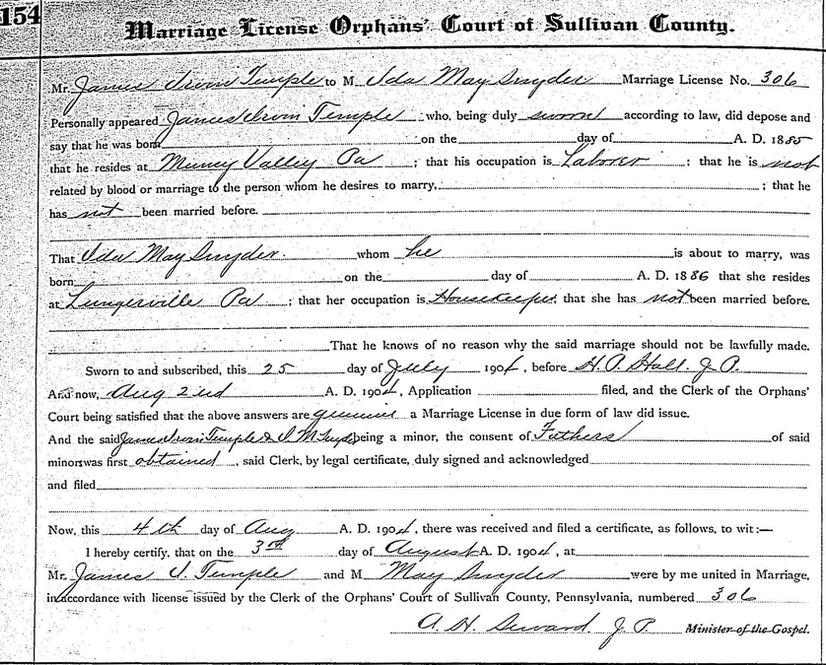 154
Marriage License Orphans' Court of Sullivan County.
Mr. James Irvin Temple to M Ida May Snyder Marriage License No. 306
Personally appeared James Irvin Temple who, being duly sworn according to law, did depose and
say that he was born on the day of A. D. 1885
that he resides at Muncy Valley Pa ; that his occupation is Laborer ; that he is not
related by blood or marriage to the person whom he desires to marry, ; that he
has not been married before.
That Ida May Snyder. whom he is about to marry, was
born on the day of A. D. 1886 that she resides
at Lungerville Pa ; that her occupation is Housekeeper that she has not been married before.
That he knows of no reason why the said marriage should not be lawfully made.
Sworn to and subscribed, this 25 day of July 1904, before H. P. Hall. J. P.
And now, Aug 2nd A. D. 1904, Application filed, and the Clerk of the Orphans'
Court being satisfied that the above answers are genuine a Marriage License in due form of law did issue.
And the said James Irvin Temple & I M Snyder being a minor, the consent of Fathers of said
minors was first obtained , said Clerk, by legal certificate, duly signed and acknowledged
and filed
Now, this 4th day of Aug A. D. 1904, there was received and filed a certificate, as follows, to wit:—
I hereby certify, that on the 3rd day of August A. D. 1904, at
Mr. James I. Temple and M May Snyder were by me united in Marriage,
in accordance with license issued by the Clerk of the Orphans' Court of Sullivan County, Pennsylvania, numbered 306
A. H. Seward. J. P. Minister of the Gospel.